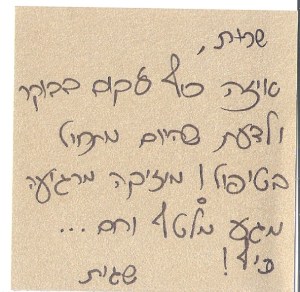 שרית,
איזה כיף לקום בבוקר
ולדעת שהיום מתחיל
בטיפול! מוזיקה מרגיעה
מגע מלטף וחם...
כיף!
שגית